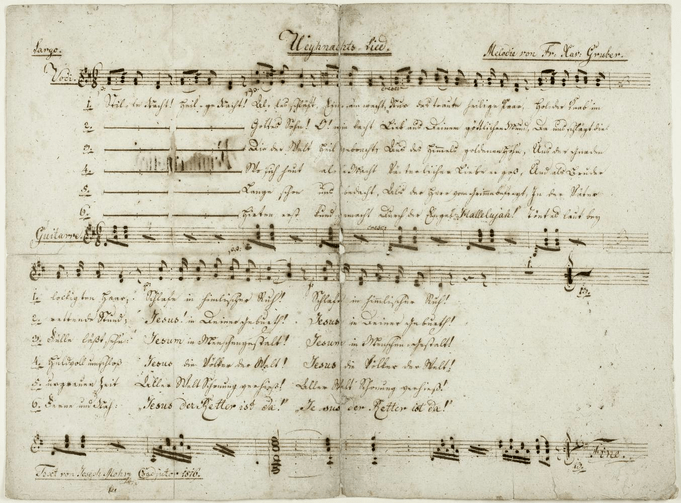 Weyhnachts-Lied.
Largo. Melodie von Fr. Xav. Gruber.
1. Stille Nacht! Heilge Nacht! Alles schläft, Einsam wacht, Nur das traute heilige Paar, Holder Knab' im
2. Gottes Sohn! O!
3. Die der Welt Heil gebracht, Aus des Himmels goldenen Höhn, Aus der Gnaden
4. Wo sich heut alle Macht Väterlicher Liebe ergoß, Und als Bruder
5. Lange schon
6. Hirten erst kund gemacht Durch der Engel Hallelujah! Tönt es laut bey
Guitarre.
1. lockigten Haar; Schlafe in himmlischer Ruh! Schlafe in himmlischer Ruh!
2. rettende Stund; Jesus! in Deiner Geburth! Jesus in Deiner Geburth!
3. Fülle läßt sehn: Jesum in Menschengestalt! Jesum in Menschengestalt!
4. huldvoll umschloß Jesus die Völker der Welt! Jesus die Völker der Welt!
5. Aller Welt Schonung verhieß! Aller Welt Schonung verhieß!
6. Ferne und Nah: "Jesus der Retter ist da!" "Jesus der Retter ist da!"
Fine.
Text von Joseph Mohr Coadjutor 1816.